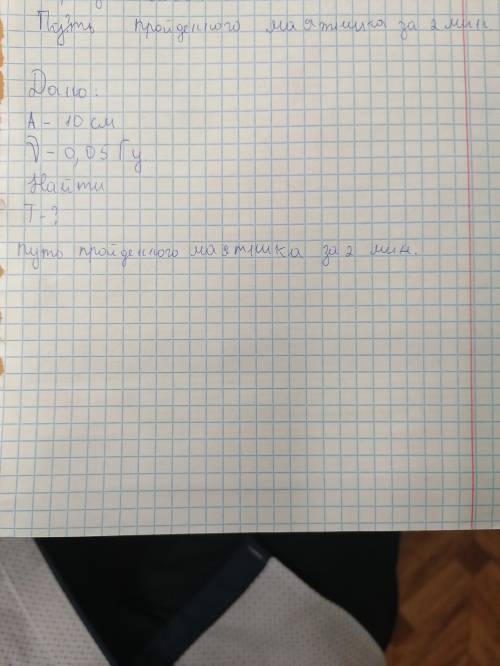 Путь пройденного маятника за 2 мин.
Дано:
А - 10 см
ν - 0,05 Гц
Найти
Т - ?
Путь пройденного маятника за 2 мин.